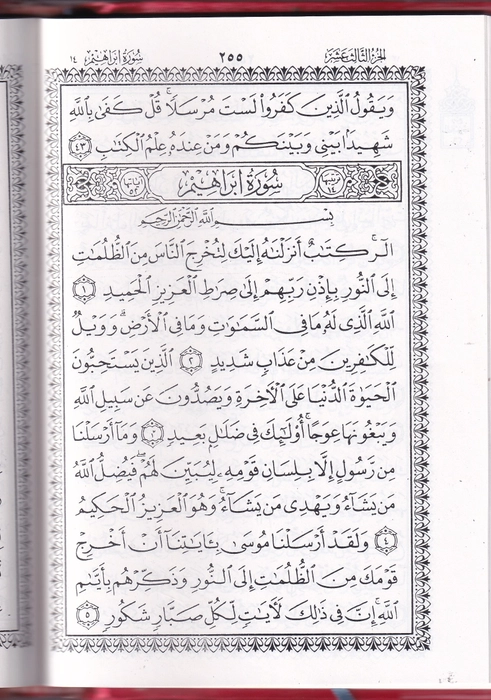 الجزء الثالث عشر ٢٥٥ سورة ابراهيم ١٤
وَيَقُولُ ٱلَّذِينَ كَفَرُوا۟ لَسْتَ مُرْسَلًا ۚ قُلْ كَفَىٰ بِٱللَّهِ
شَهِيدًۢا بَيْنِى وَبَيْنَكُمْ وَمَنْ عِندَهُۥ عِلْمُ ٱلْكِتَـٰبِ ٤٣
ترتيبها ١٤ سُورَةُ إِبْرَاهِيمَ آياتها ٥٢
بِسْمِ ٱللَّهِ ٱلرَّحْمَـٰنِ ٱلرَّحِيمِ
الٓر ۚ كِتَـٰبٌ أَنزَلْنَـٰهُ إِلَيْكَ لِتُخْرِجَ ٱلنَّاسَ مِنَ ٱلظُّلُمَـٰتِ
إِلَى ٱلنُّورِ بِإِذْنِ رَبِّهِمْ إِلَىٰ صِرَٰطِ ٱلْعَزِيزِ ٱلْحَمِيدِ ١
ٱللَّهِ ٱلَّذِى لَهُۥ مَا فِى ٱلسَّمَـٰوَٰتِ وَمَا فِى ٱلْأَرْضِ ۗ وَوَيْلٌ
لِّلْكَـٰفِرِينَ مِنْ عَذَابٍ شَدِيدٍ ٢ ٱلَّذِينَ يَسْتَحِبُّونَ
ٱلْحَيَوٰةَ ٱلدُّنْيَا عَلَى ٱلْـَٔاخِرَةِ وَيَصُدُّونَ عَن سَبِيلِ ٱللَّهِ
وَيَبْغُونَهَا عِوَجًا ۚ أُو۟لَـٰٓئِكَ فِى ضَلَـٰلٍۭ بَعِيدٍ ٣ وَمَآ أَرْسَلْنَا
مِن رَّسُولٍ إِلَّا بِلِسَانِ قَوْمِهِۦ لِيُبَيِّنَ لَهُمْ ۖ فَيُضِلُّ ٱللَّهُ
مَن يَشَآءُ وَيَهْدِى مَن يَشَآءُ ۚ وَهُوَ ٱلْعَزِيزُ ٱلْحَكِيمُ
٤ وَلَقَدْ أَرْسَلْنَا مُوسَىٰ بِـَٔايَـٰتِنَآ أَنْ أَخْرِجْ
قَوْمَكَ مِنَ ٱلظُّلُمَـٰتِ إِلَى ٱلنُّورِ وَذَكِّرْهُم بِأَيَّىٰمِ
ٱللَّهِ ۚ إِنَّ فِى ذَٰلِكَ لَـَٔايَـٰتٍ لِّكُلِّ صَبَّارٍ شَكُورٍ ٥